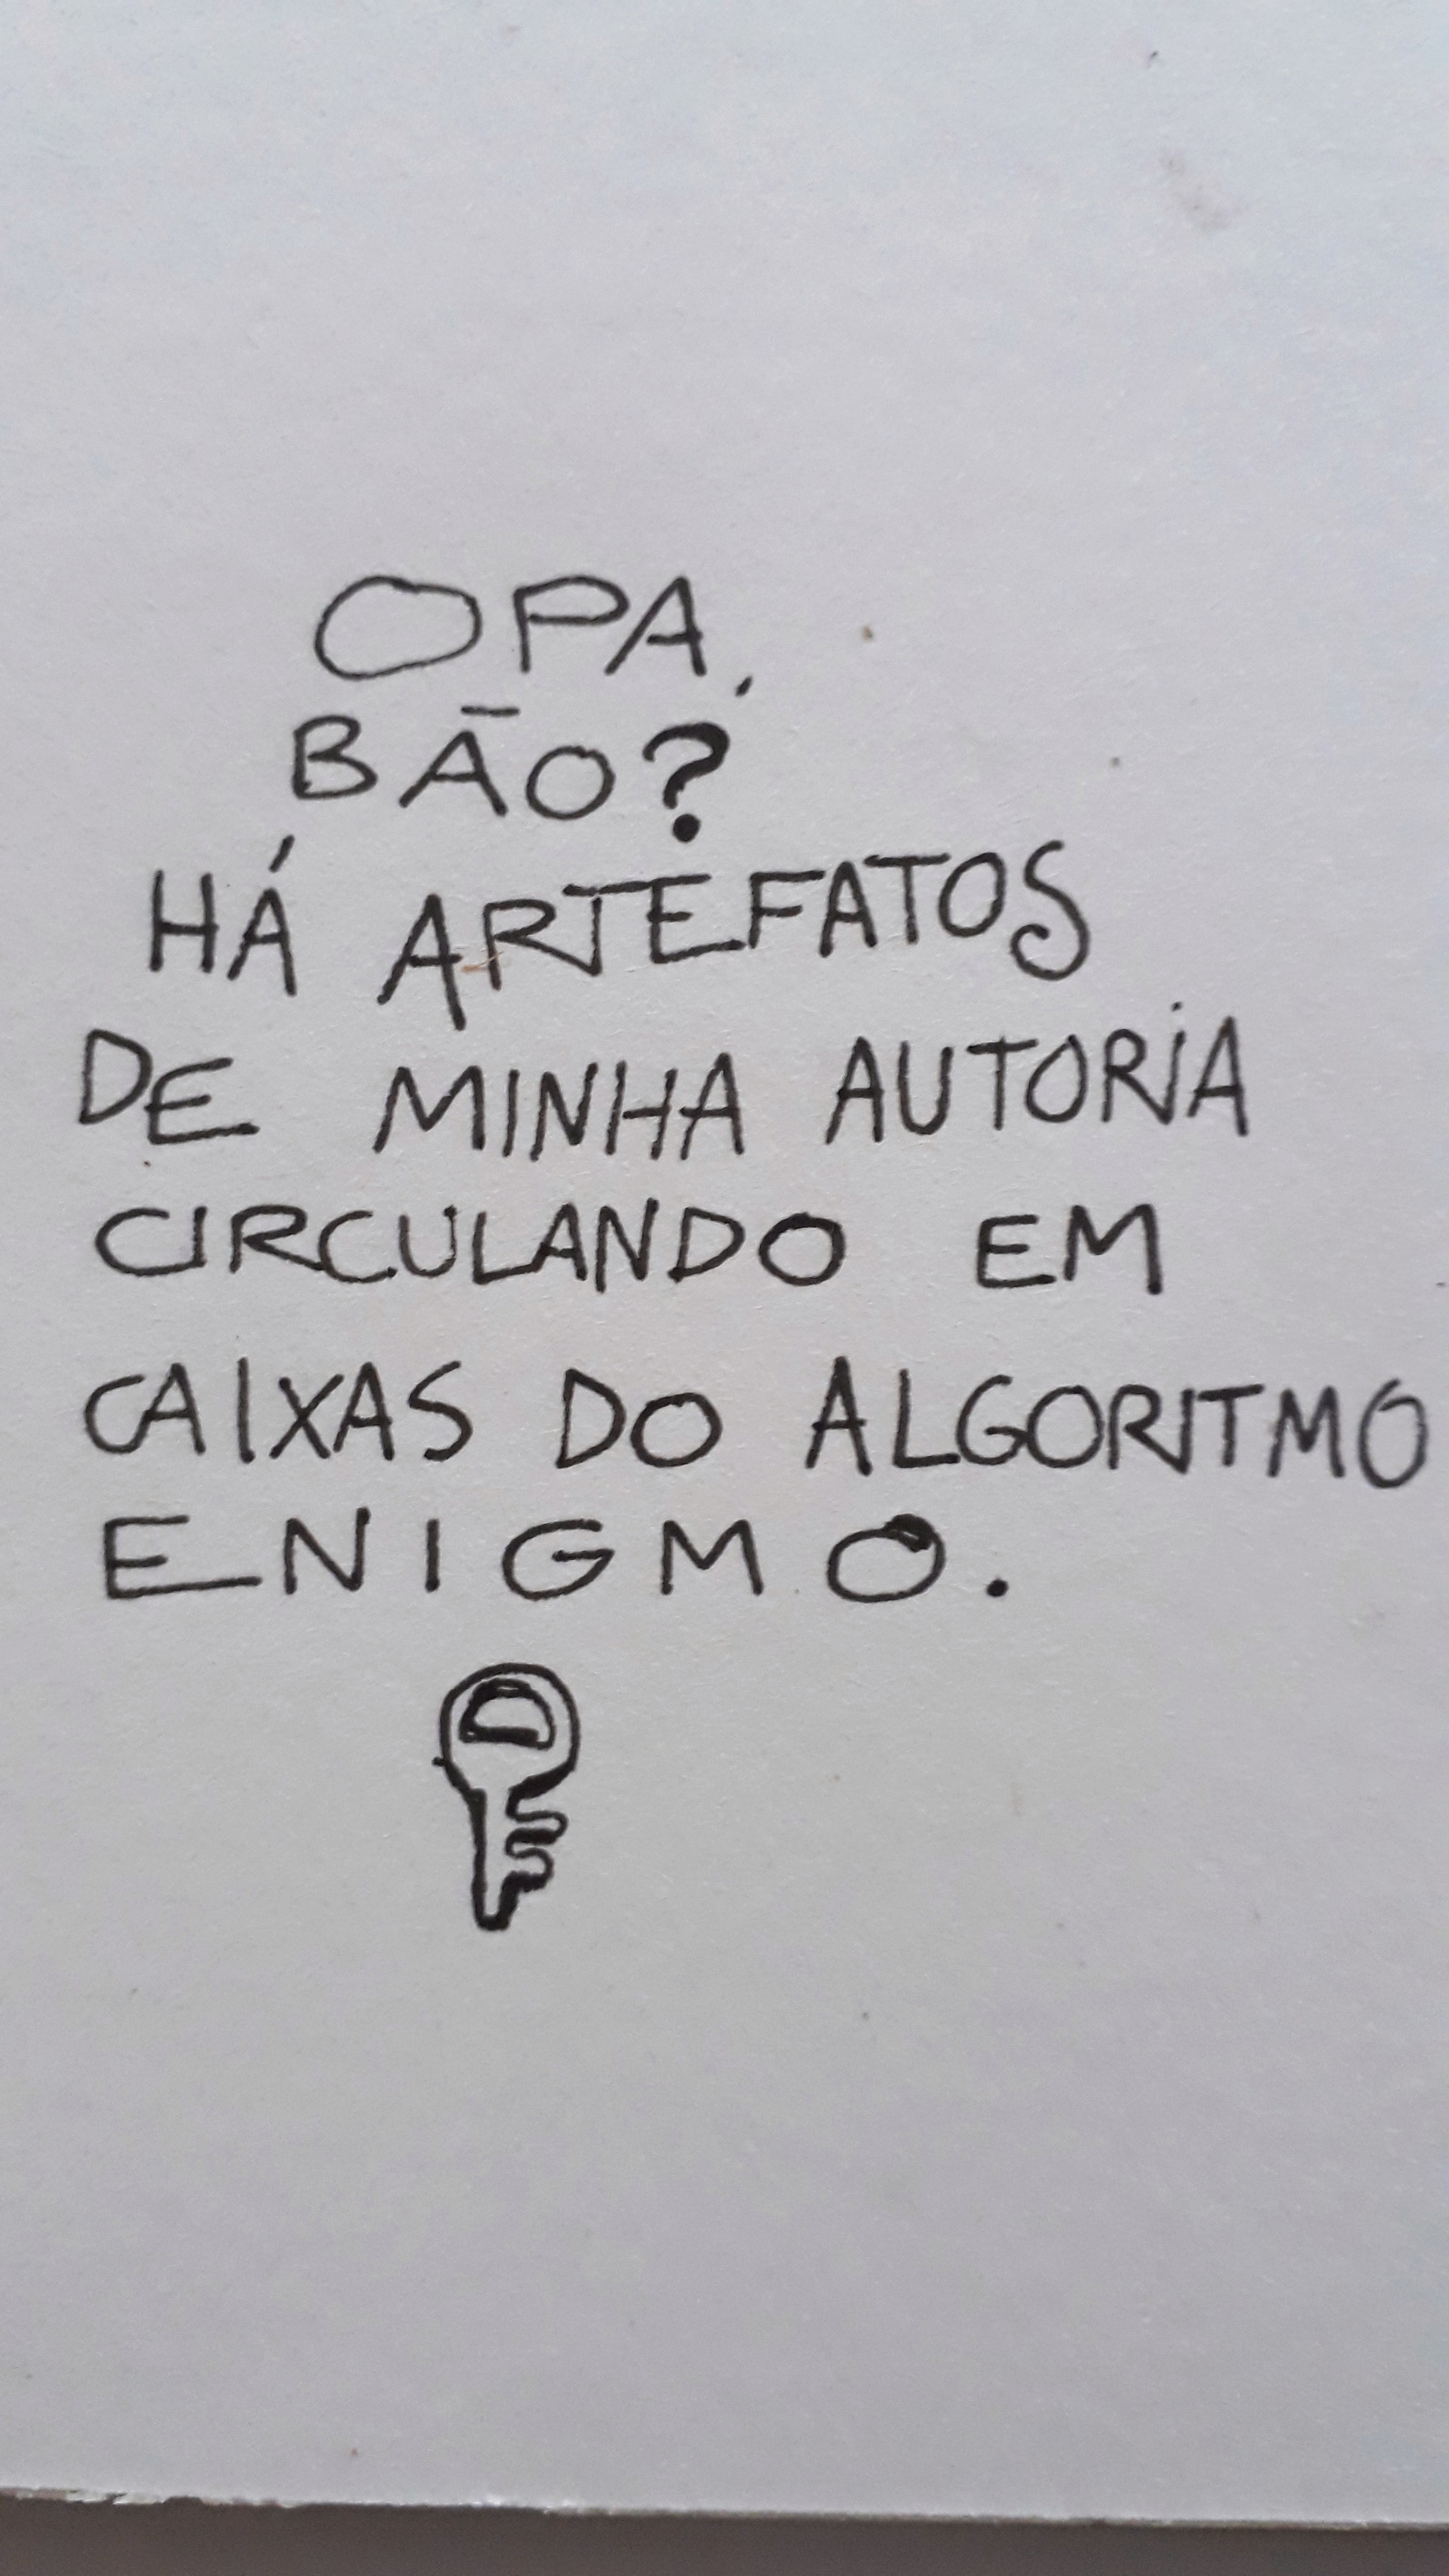 OPA,
BÃO?
HÁ ARTEFATOS
DE MINHA AUTORIA
CIRCULANDO EM
CAIXAS DO ALGORITMO
ENIGMO.